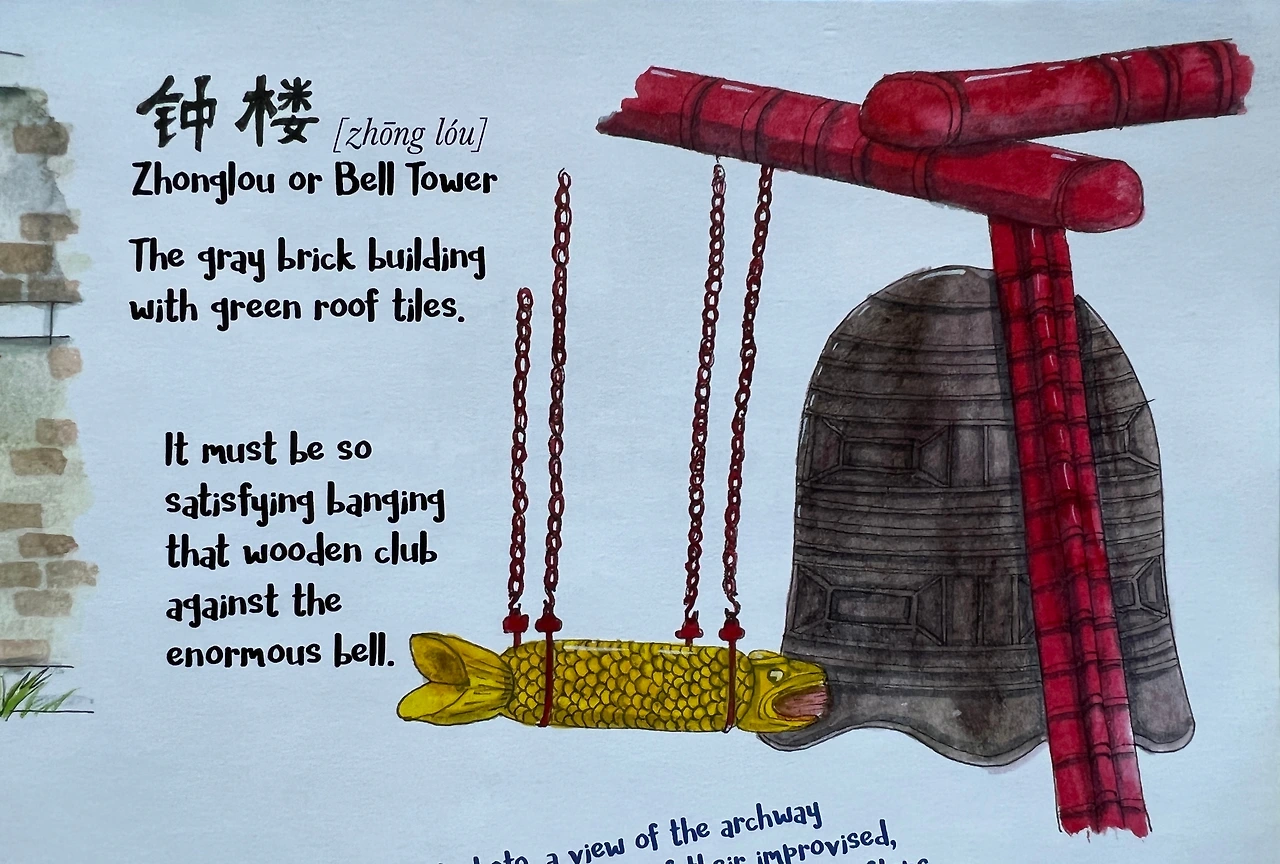 钟楼 [zhōng lóu]
Zhonglou or Bell Tower
The gray brick building
with green roof tiles.
It must be so
satisfying banging
that wooden club
against the
enormous bell.
a view of the archway
their improvised,